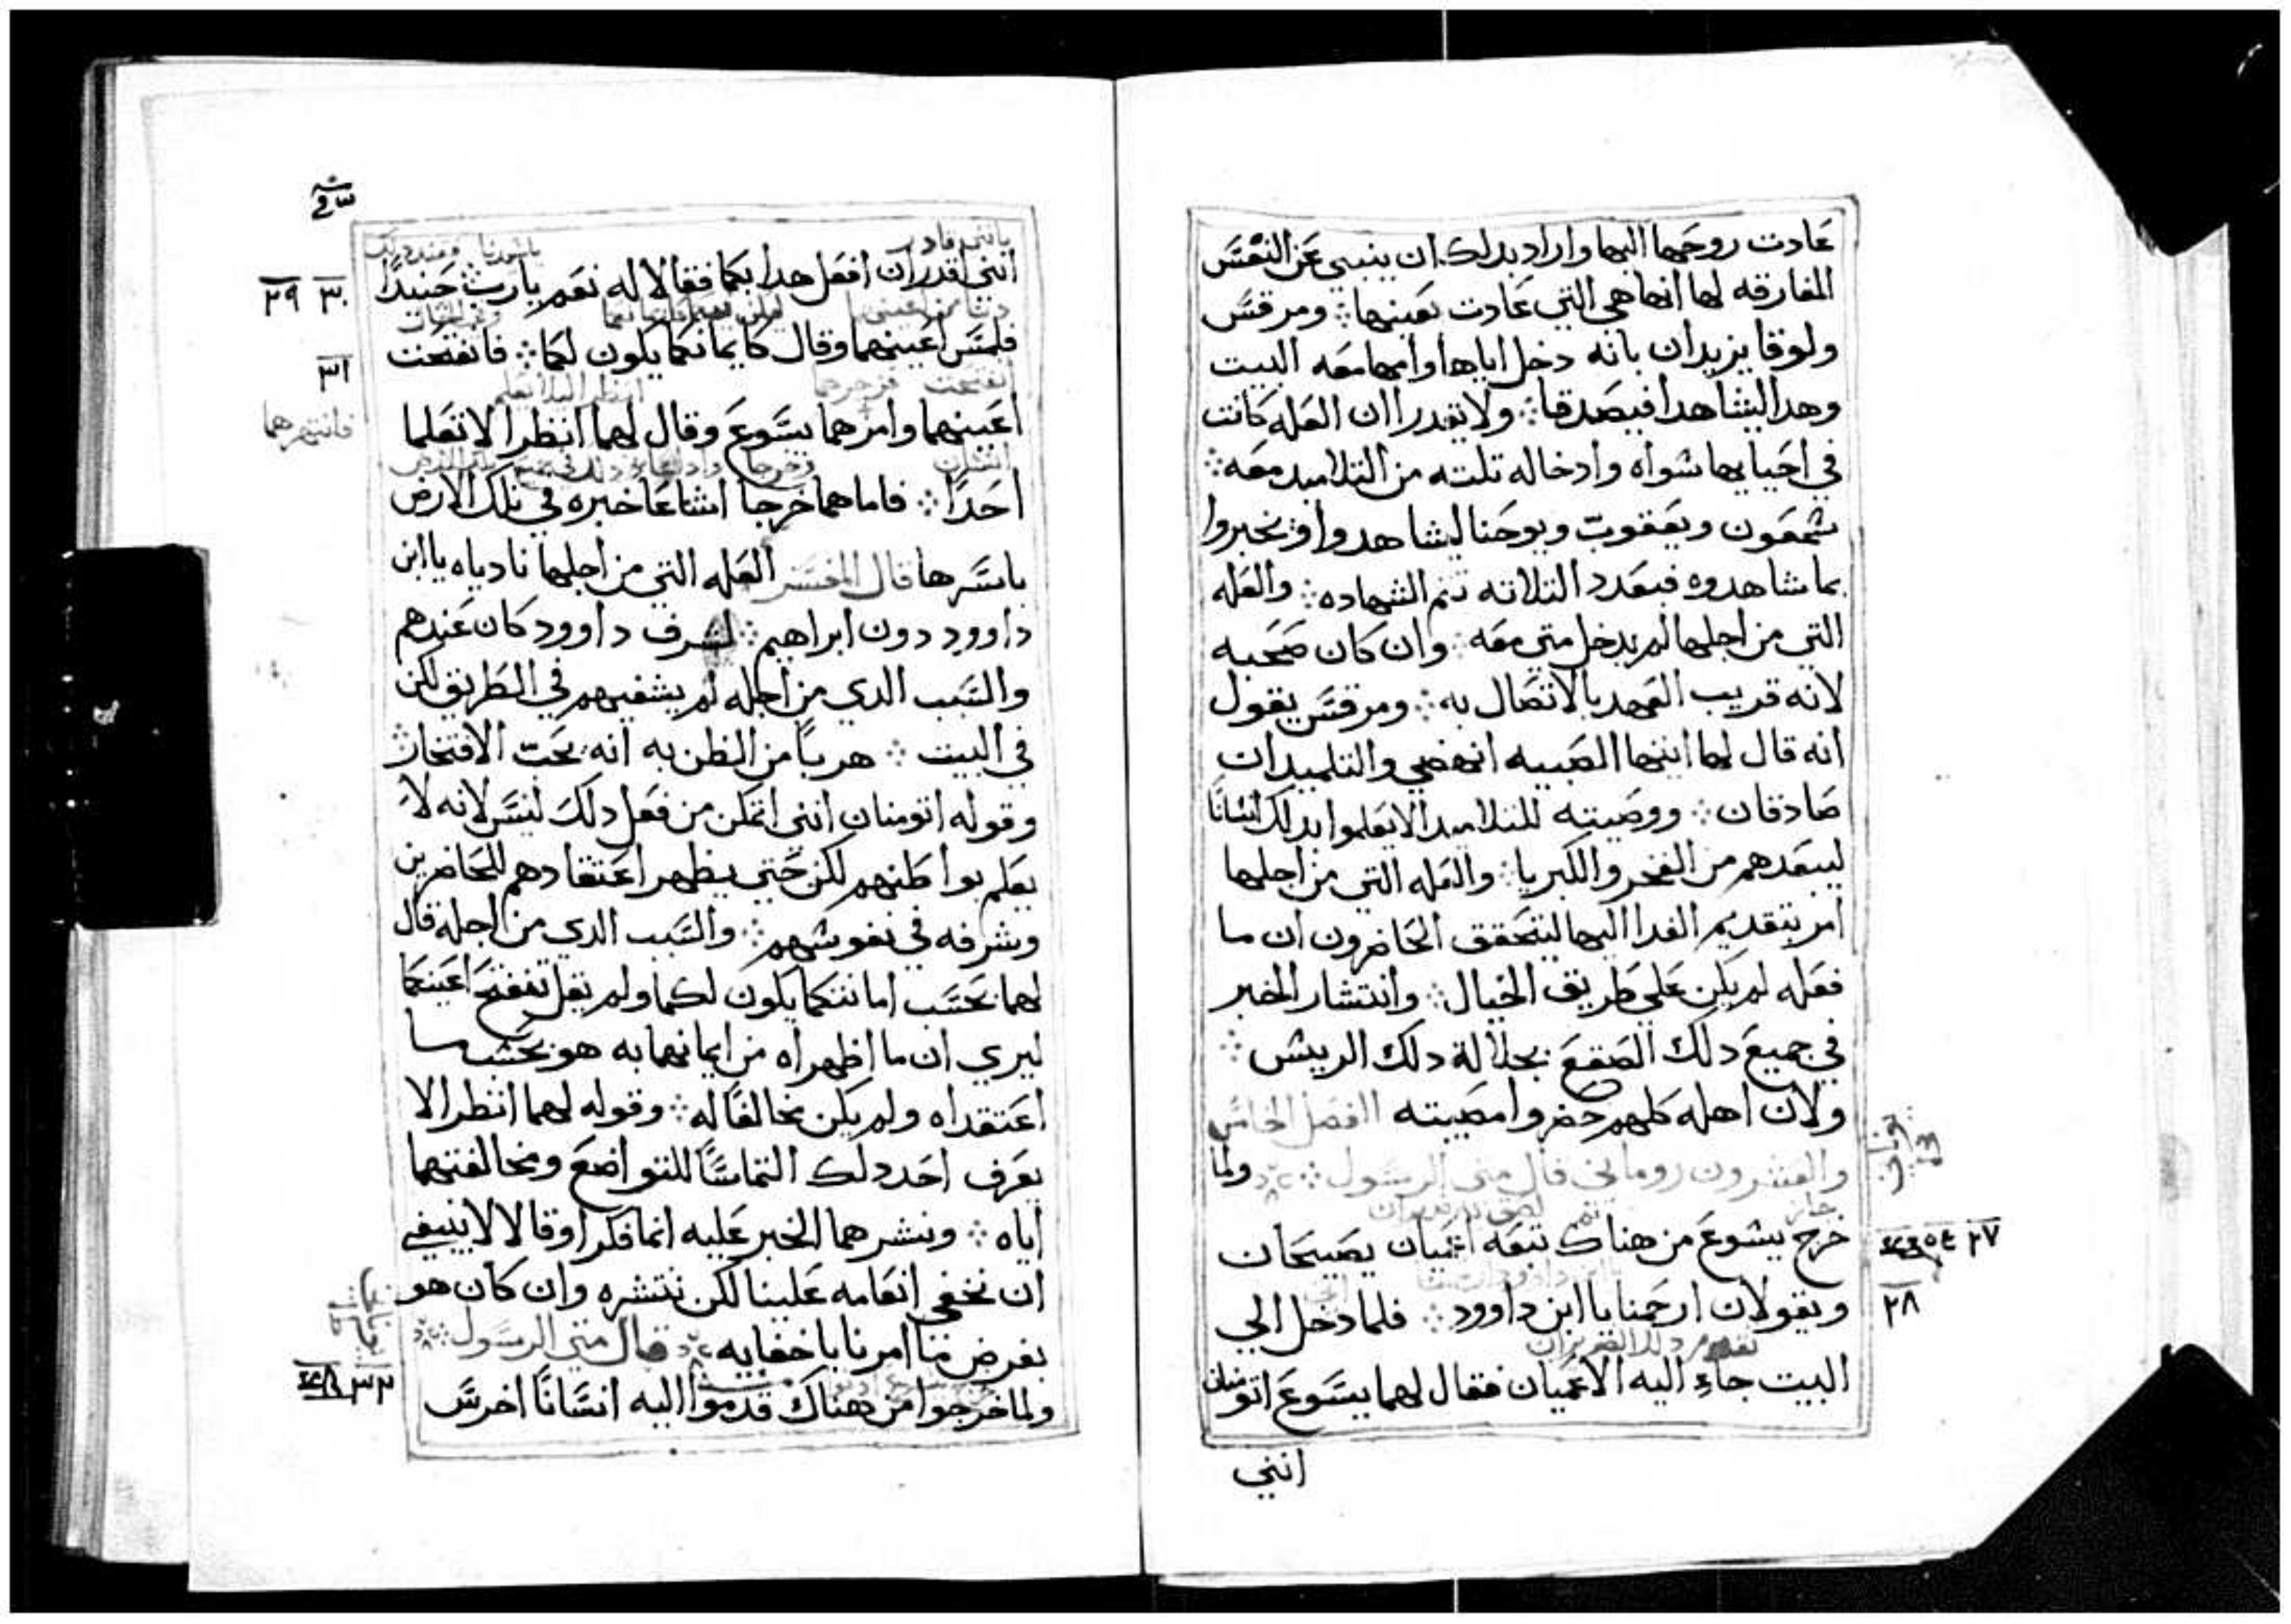 عادت روحها اليها واراد بدلك ان ينبي عن النفس
المفارقه لها انها هي التي عادت بعينها ⁘ ومرقس
ولوقا يزيدان بانه دخل اباها وامها معه البيت
وهدا ليشاهدا فيصدقا ⁘ ولا تقدرا ان العله كانت
في احيايها سواه وادخاله تلته من التلاميد معه ⁘
شمعون ويعقوب ويوحنا ليشاهدوا ويخبروا
بما شاهدوه فبعدد التلاته تتم الشهاده ⁘ والعله
التي من اجلها لم يدخل متي معه ⁘ وان كان صحبه
لانه قريب العهد بالاتصال به ⁘ ومرقس يقول
انه قال لها ايتها الصبيه انهضي والتلميدان
صادقان ⁘ ووصيته للتلاميد الا يعلموا بدلك انسانا
ليبعدهم من الفخر والكبريا ⁘ والعله التي من اجلها
امر بتقديم الغدا اليها ليتحقق الحاضرون ان ما
فعله لم يكن علي طريق الخيال ⁘ وانتشار الخبر
في جميع دلك الصقع بجلالة دلك الرييس ⁘
ولان اهله كلهم حضروا مصيبته الفصل الخامس
والعشرون روماني قال متي الرسول ⁘ ولما
خرج يسوع من هناك تبعه اعميان يصيحان
٢٧
ويقولان ارحمنا يا ابن داوود ⁘ فلما دخل الي
٢٨
البيت جاء اليه الاعميان فقال لهما يسوع اتومنان
انني
انني اقدر ان افعل هدا بكما فقالا له نعم يا رب حينيدا
٢٩ ٣٠
فلمس اعينهما وقال كايمانكما يكون لكما ⁘ فانفتحت
٣١
اعينهما وامرهما يسوع وقال لهما انظرا لا تعلما
فانتهرهما
احدا ⁘ فاما هما خرجا اشاعا خبره في تلك الارض
باسرها قال المفسر العله التي من اجلها نادياه يا ابن
داوود دون ابراهيم ⁘ لشرف داوود كان عندهم
والسبب الدي من اجله لم يشفيهم في الطريق لكن
في البيت ⁘ هربا من الظن به انه يحب الافتخار
وقوله اتومنان انني اتمكن من فعل دلك ليس لانه لا
يعلم بواطنهم لكن حتي يظهر اعتقادهم للحاضرين
ويشرفه في نفوسهم ⁘ والسبب الدي من اجله قال
لهما بحسب امانتكما يكون لكما ولم يقل تنفتح اعينكما
ليري ان ما اظهراه من ايمانهما به هو بحسب ما
اعتقداه ولم يكن مخالفا له ⁘ وقوله لهما انظرا الا
يعرف احد دلك التماسا للتواضع ومخالفتهما
اياه ⁘ ونشرهما الخبر عليه انما فكرا وقالا لا ينبغي
ان نخفي انعامه علينا لكن ننشره وان كان هو
يعرض منا امرنا باخفايه ⁘ قال متي الرسول ⁘
ولما خرجوا من هناك قدموا اليه انسانا اخرس
٣٢